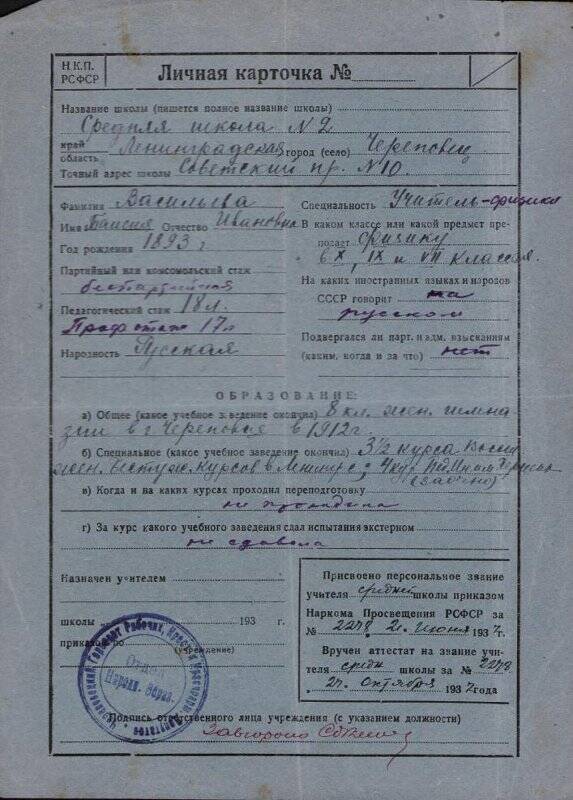 Н.К.П.
РСФСР
Личная карточка №
Название школы (пишется полное название школы)
Средняя школа N 2
край
область Ленинградская город (село) Череповец
Точный адрес школы Советский пр. N 10.
Фамилия Васильева
Имя Таисия Отчество Ивановна
Год рождения 1893 г
Партийный или комсомольский стаж
беспартийная
Педагогический стаж 18 л.
Профстаж 17 л
Народность Русская
Специальность Учитель-физики
В каком классе или какой предмет пре-
подает физику
в X, IX и VII классах.
На каких иностранных языках и народов
СССР говорит на
русском
Подвергался ли парт. и адм. взысканиям
(каким, когда и за что) нет
ОБРАЗОВАНИЕ:
а) Общее (какое учебное заведение окончил) 8 кл. жен. гимна
зии в г. Череповце в 1912 г.
б) Специальное (какое учебное заведение окончил) 3½ курса
жен. курсов в
(заочно)
в) Когда и на каких курсах проходил переподготовку
не проходила
г) За курс какого учебного заведения сдал испытания экстерном
не сдавала
Назначен учителем
школы 193 г.
приказом по
(учреждение)
Отдел
Народн. Образ.
Присвоено персональное звание
учителя средней школы приказом
Наркома Просвещения РСФСР за
№ 2278 2 июня 1937 г.
Вручен аттестат на звание учи-
теля средн школы за № 2278
27 октября 1937 года
Подпись ответственного лица учреждения (с указанием должности)